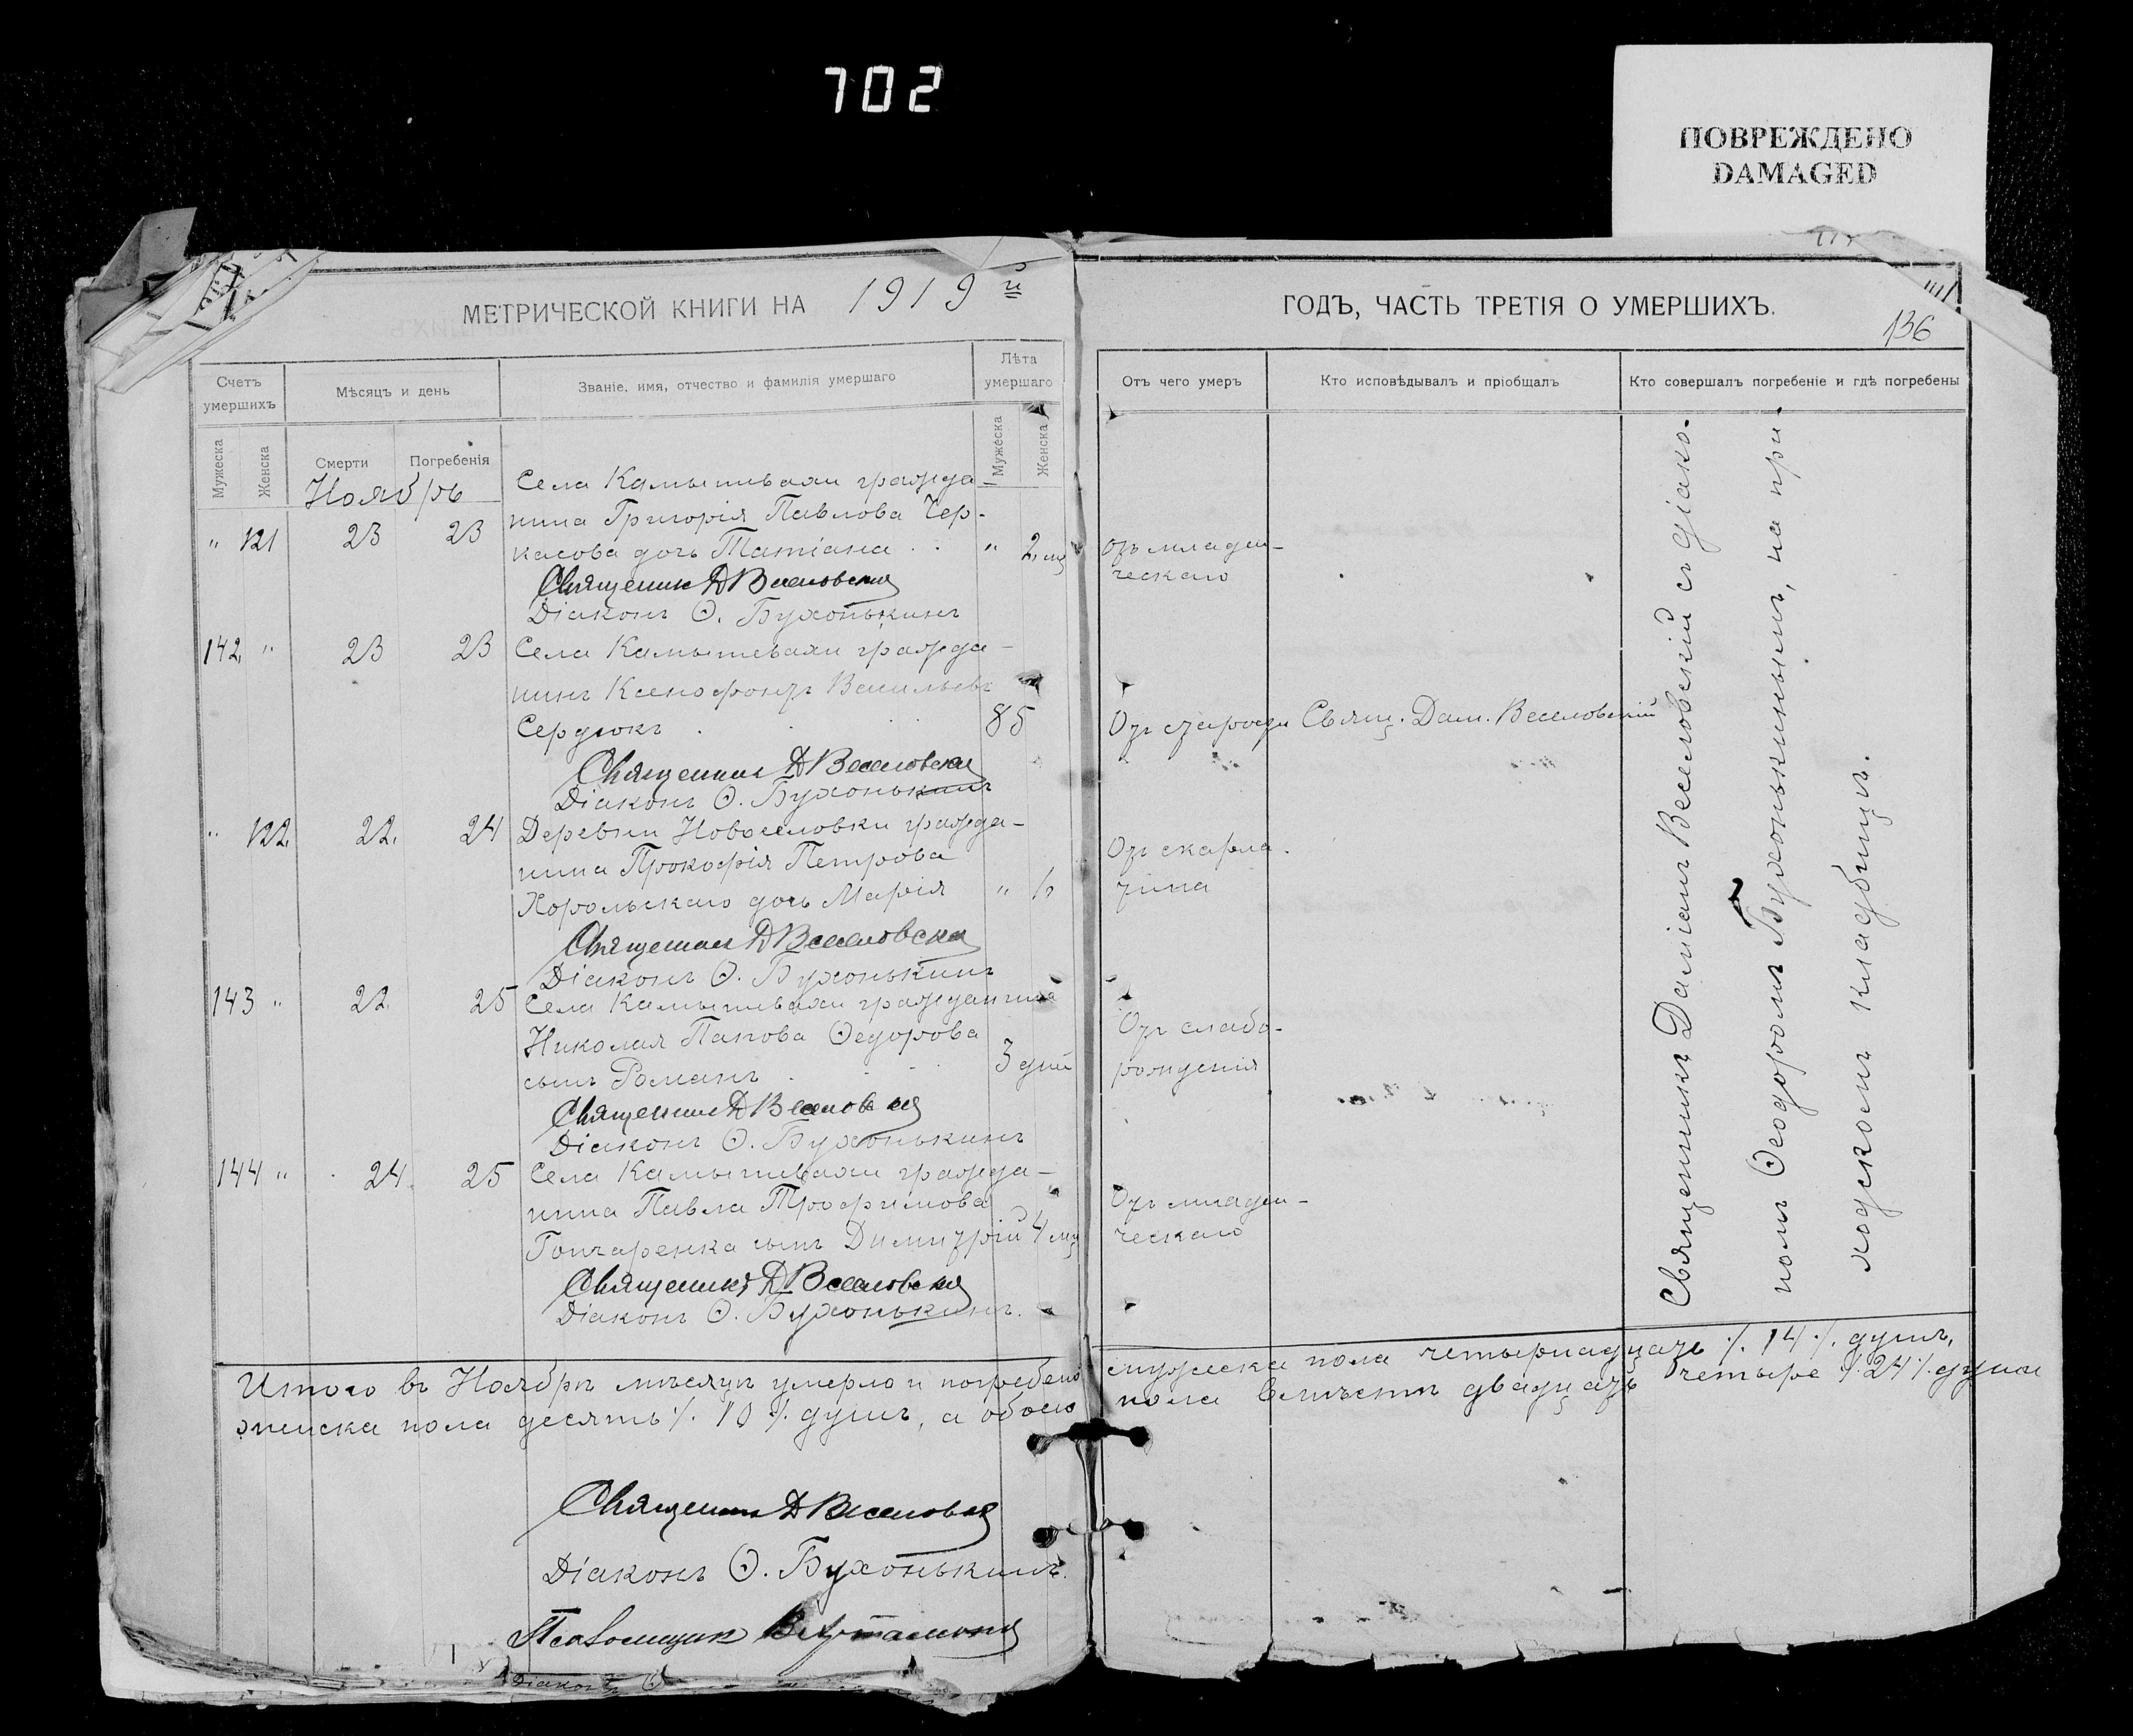 702
ПОВРЕЖДЕНО
DAMAGED
МЕТРИЧЕСКОЙ КНИГИ НА 1919 й
ГОДЪ, ЧАСТЬ ТРЕТІЯ О УМЕРШИХЪ.
136
Счетъ умершихъ
Мѣсяцъ и день
Званіе, имя, отчество и фамилія умершаго
Лѣта умершаго
Отъ чего умеръ
Кто исповѣдывалъ и пріобщалъ
Кто совершалъ погребеніе и гдѣ погребены
Мужеска
Женска
Смерти
Погребенія
Мужеска
Женска
Ноябрь
Села Камышевахи гражда-
нина Григорія Павлова Чер-
" 121 23 23 касова дочь Татіана . . " 2 мц
Отъ младен-
ческаго
Священникъ Д Веселовскій
Діаконъ Ѳ. Бухонькинъ
142 " 23 23 Села Камышевахи гражда-
нинъ Ксенофонтъ Васильевъ
Сердюкъ . . . 85 Отъ старости Свящ. Дам. Веселовскій
Священникъ Д Веселовскій
Діаконъ Ѳ. Бухонькинъ
" 122 22 24 Деревни Новоселовки гражда-
нина Прокофія Петрова
Хорольскаго дочь Марія "
Отъ скарла-
тина
Священникъ Д Веселовскій
Діаконъ Ѳ. Бухонькинъ
143 " 22 25 Села Камышевахи гражданина
Николая Федорова
сынъ Романъ . . . 3 дня
Отъ слабо-
рожденія
Священникъ Д Веселовскій
Діаконъ Ѳ. Бухонькинъ
144 " 24 25 Села Камышевахи гражда-
нина Павла Трофимова
Гончаренка сынъ Димитрій 4 мц
Отъ младен-
ческаго
Священникъ Д Веселовскій
Діаконъ Ѳ. Бухонькинъ.
Священникъ Даміанъ Веселовскій съ діако-
номъ Ѳеодоромъ Бухонькинымъ, на при-
ходскомъ кладбищѣ.
Итого въ Ноябрѣ мѣсяцѣ умерло и погребено мужеска пола четырнадцать ./. 14 ./. душъ,
женска пола десять ./. 10 ./. душъ, а обоего пола вмѣстѣ двадцать четыре ./. 24 ./. души
Священникъ Д Веселовскій
Діаконъ Ѳ. Бухонькинъ.
Псаломщикъ
Діаконъ Ѳ